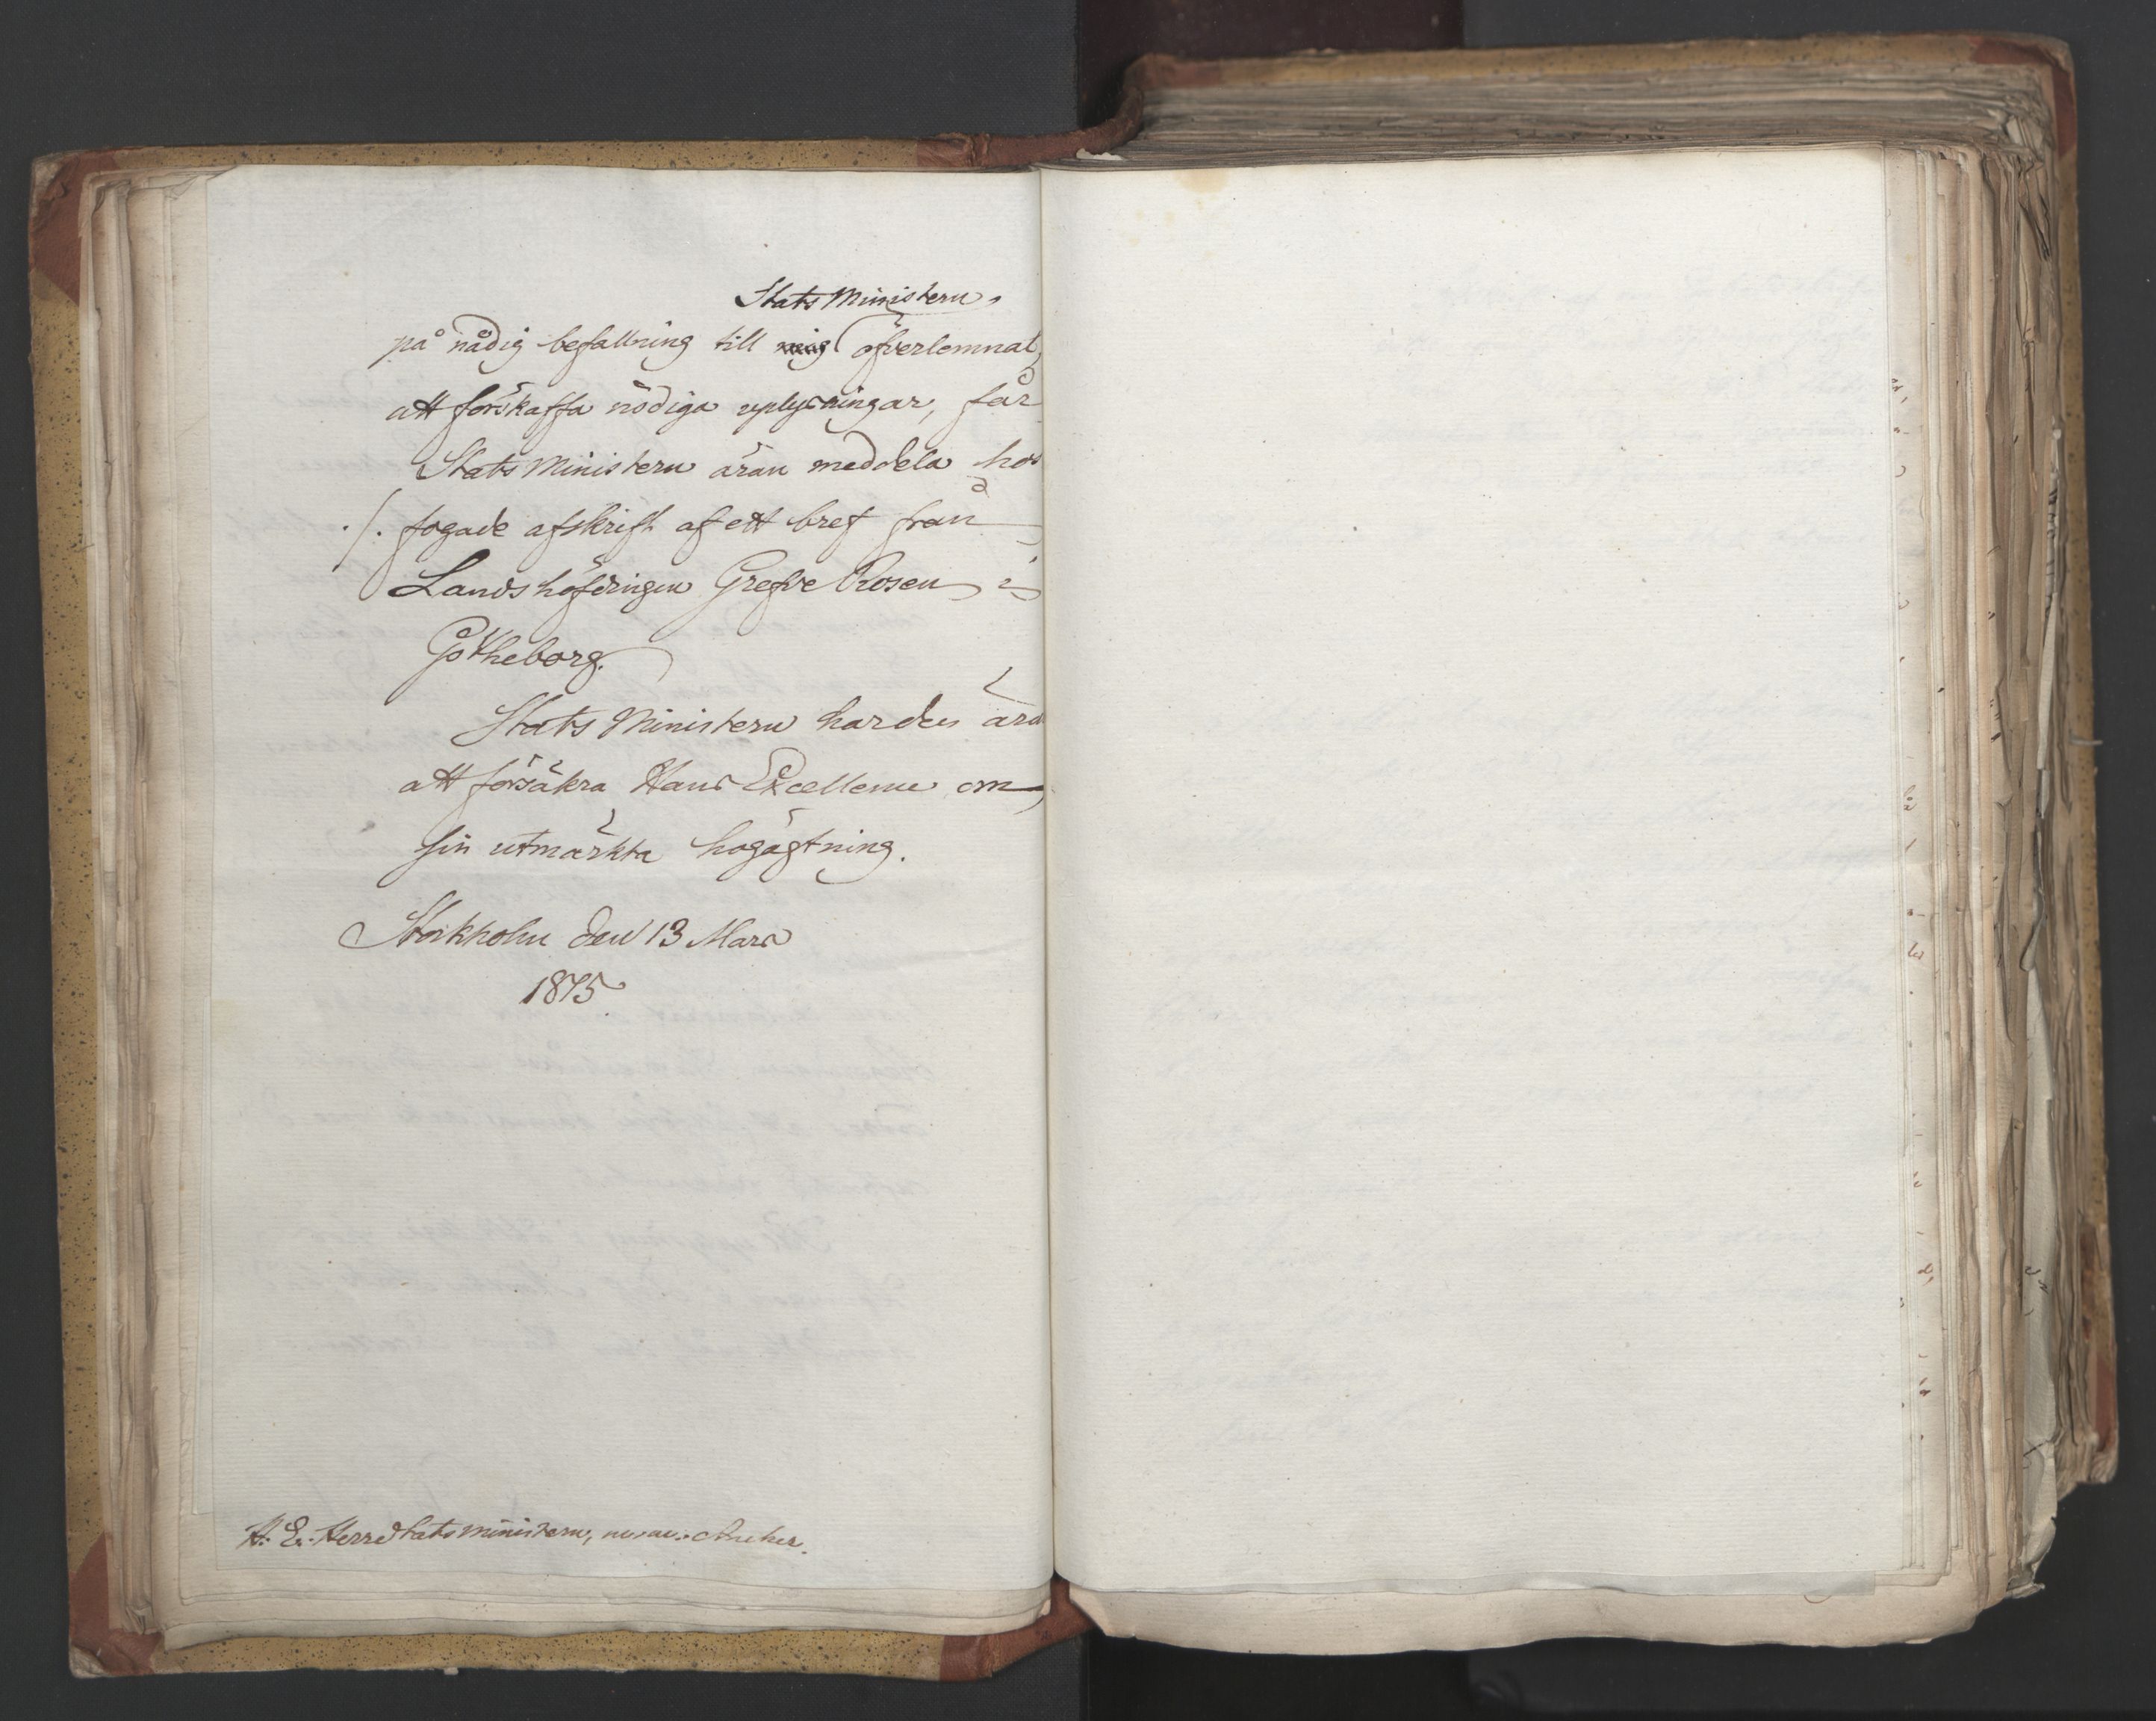 Stats Ministern
på nådig befallning till mig öfverlemnat,
att förskaffa nödiga uplysningar, får
Stats Ministern äran meddela hos
./. fogade afskrift af ett bref från
Landshöfdingen Grefve Rosen i
Götheborg.
Stats Ministern har den ära
att försäkra Hans Excellence om
sin utmärkta högagtning.
Stockholm den 13 Mars
1815
H: E: Herr Stats Ministern, m. m. Ancker.